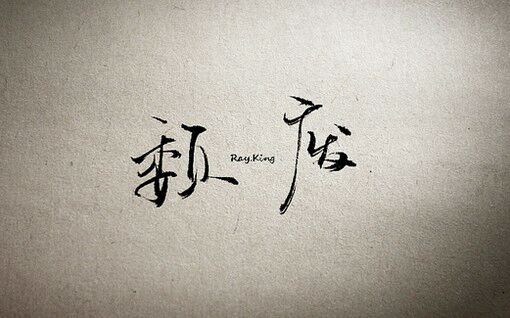 颓 Ray.King 废